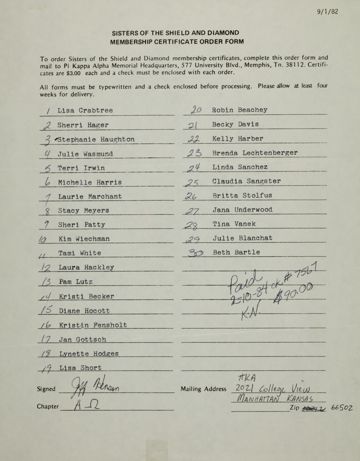 9/1/82
SISTERS OF THE SHIELD AND DIAMOND
MEMBERSHIP CERTIFICATE ORDER FORM
To order Sisters of the Shield and Diamond membership certificates, complete this order form and
mail to Pi Kappa Alpha Memorial Headquarters, 577 University Blvd., Memphis, Tn. 38112. Certifi-
cates are $3.00 each and a check must be enclosed with each order.
All forms must be typewritten and a check enclosed before processing. Please allow at least four
weeks for delivery.
1 Lisa Crabtree
2 Sherri Hager
3 Stephanie Haughton
4 Julie Wasmund
5 Terri Irwin
6 Michelle Harris
7 Laurie Marchant
8 Stacy Meyers
9 Sheri Patty
10 Kim Wiechman
11 Tami White
12 Laura Hackley
13 Pam Lutz
14 Kristi Becker
15 Diane Hocott
16 Kristin Fensholt
17 Jan Gottsch
18 Lynette Hodges
19 Lisa Short
20 Robin Beachey
21 Becky Davis
22 Kelly Harber
23 Brenda Lechtenberger
24 Linda Sanchez
25 Claudia Sangster
26 Britta Stolfus
27 Jana Underwood
28 Tina Vanek
29 Julie Blanchat
30 Beth Bartle
Paid ck# 7567
2-10-84 $90.00
KN
Signed Jeff
Chapter A Ω
ΠΚΑ
Mailing Address 2021 College View
MANHATTAN KANSAS
Zip 66502